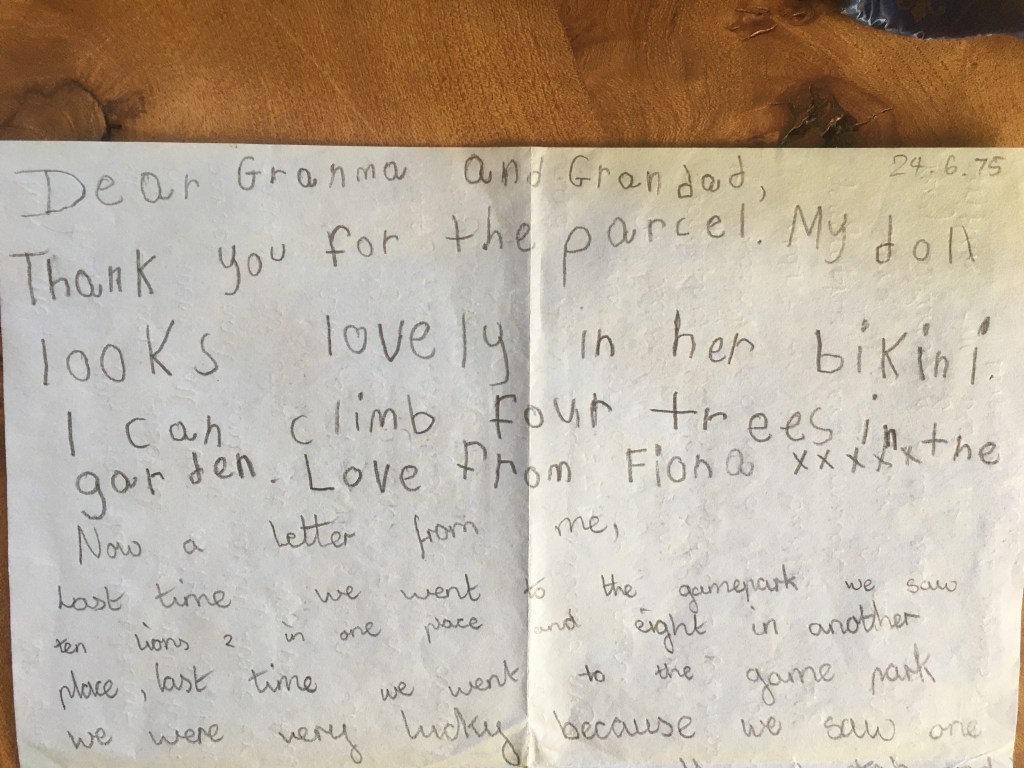 24.6.75
Dear Granma and Grandad,
Thank you for the parcel. My doll
looks lovely in her bikini.
I can climb four trees in the
garden. Love from Fiona xxxxx
Now a letter from me,
Last time we went to the gamepark we saw
ten lions 2 in one pace and eight in another
place, last time we went to the game park
we were very lucky because we saw one